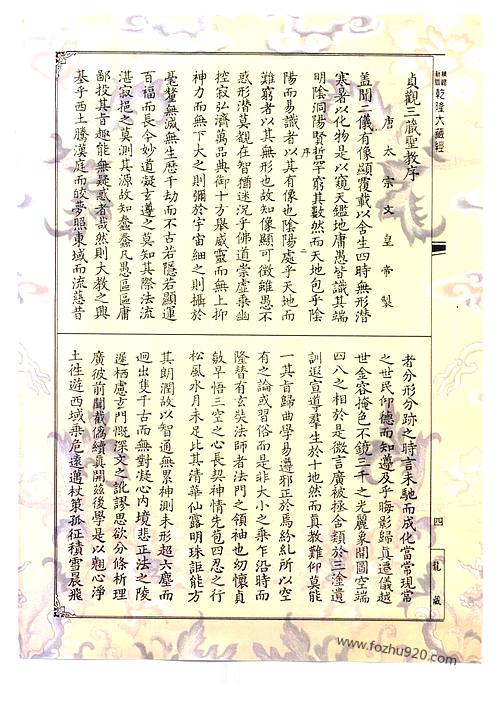 乾隆大藏經
貞觀三藏聖教序
唐太宗文皇帝製
蓋聞二儀有像顯覆載以含生四時無形潛
寒暑以化物是以窺天鑑地庸愚皆識其端
明陰洞陽賢哲罕窮其數然而天地包乎陰
陽而易識者以其有像也陰陽處乎天地而
難窮者以其無形也故知像顯可徵雖愚不
惑形潛莫覩在智猶迷況乎佛道崇虛乘幽
控寂弘濟萬品典御十方舉威靈而無上抑
神力而無下大之則彌於宇宙細之則攝於
毫釐無滅無生歷千劫而不古若隱若顯運
百福而長今妙道凝玄遵之莫知其際法流
湛寂挹之莫測其源故知蠢蠢凡愚區區庸
鄙投其旨趣能無疑惑者哉然則大教之興
基乎西土騰漢庭而皎夢照東域而流慈昔
者分形分跡之時言未馳而成化當常現常
之世民仰德而知遵及乎晦影歸真遷儀越
世金容掩色不鏡三千之光麗象開圖空端
四八之相於是微言廣被拯含類於三塗遺
訓遐宣導羣生於十地然而真教難仰莫能
一其旨歸曲學易遵邪正於焉紛糺所以空
有之論或習俗而是非大小之乘乍沿時而
隆替有玄奘法師者法門之領袖也幼懷貞
敏早悟三空之心長契神情先苞四忍之行
松風水月未足比其清華仙露明珠詎能方
其朗潤故以智通無累神測未形超六塵而
迥出隻千古而無對凝心內境悲正法之陵
遲栖慮玄門慨深文之訛謬思欲分條析理
廣彼前聞截偽續真開茲後學是以翹心淨
土往遊西域乘危遠邁杖策孤征積雪晨飛
四
龍藏
www.fozhu920.com